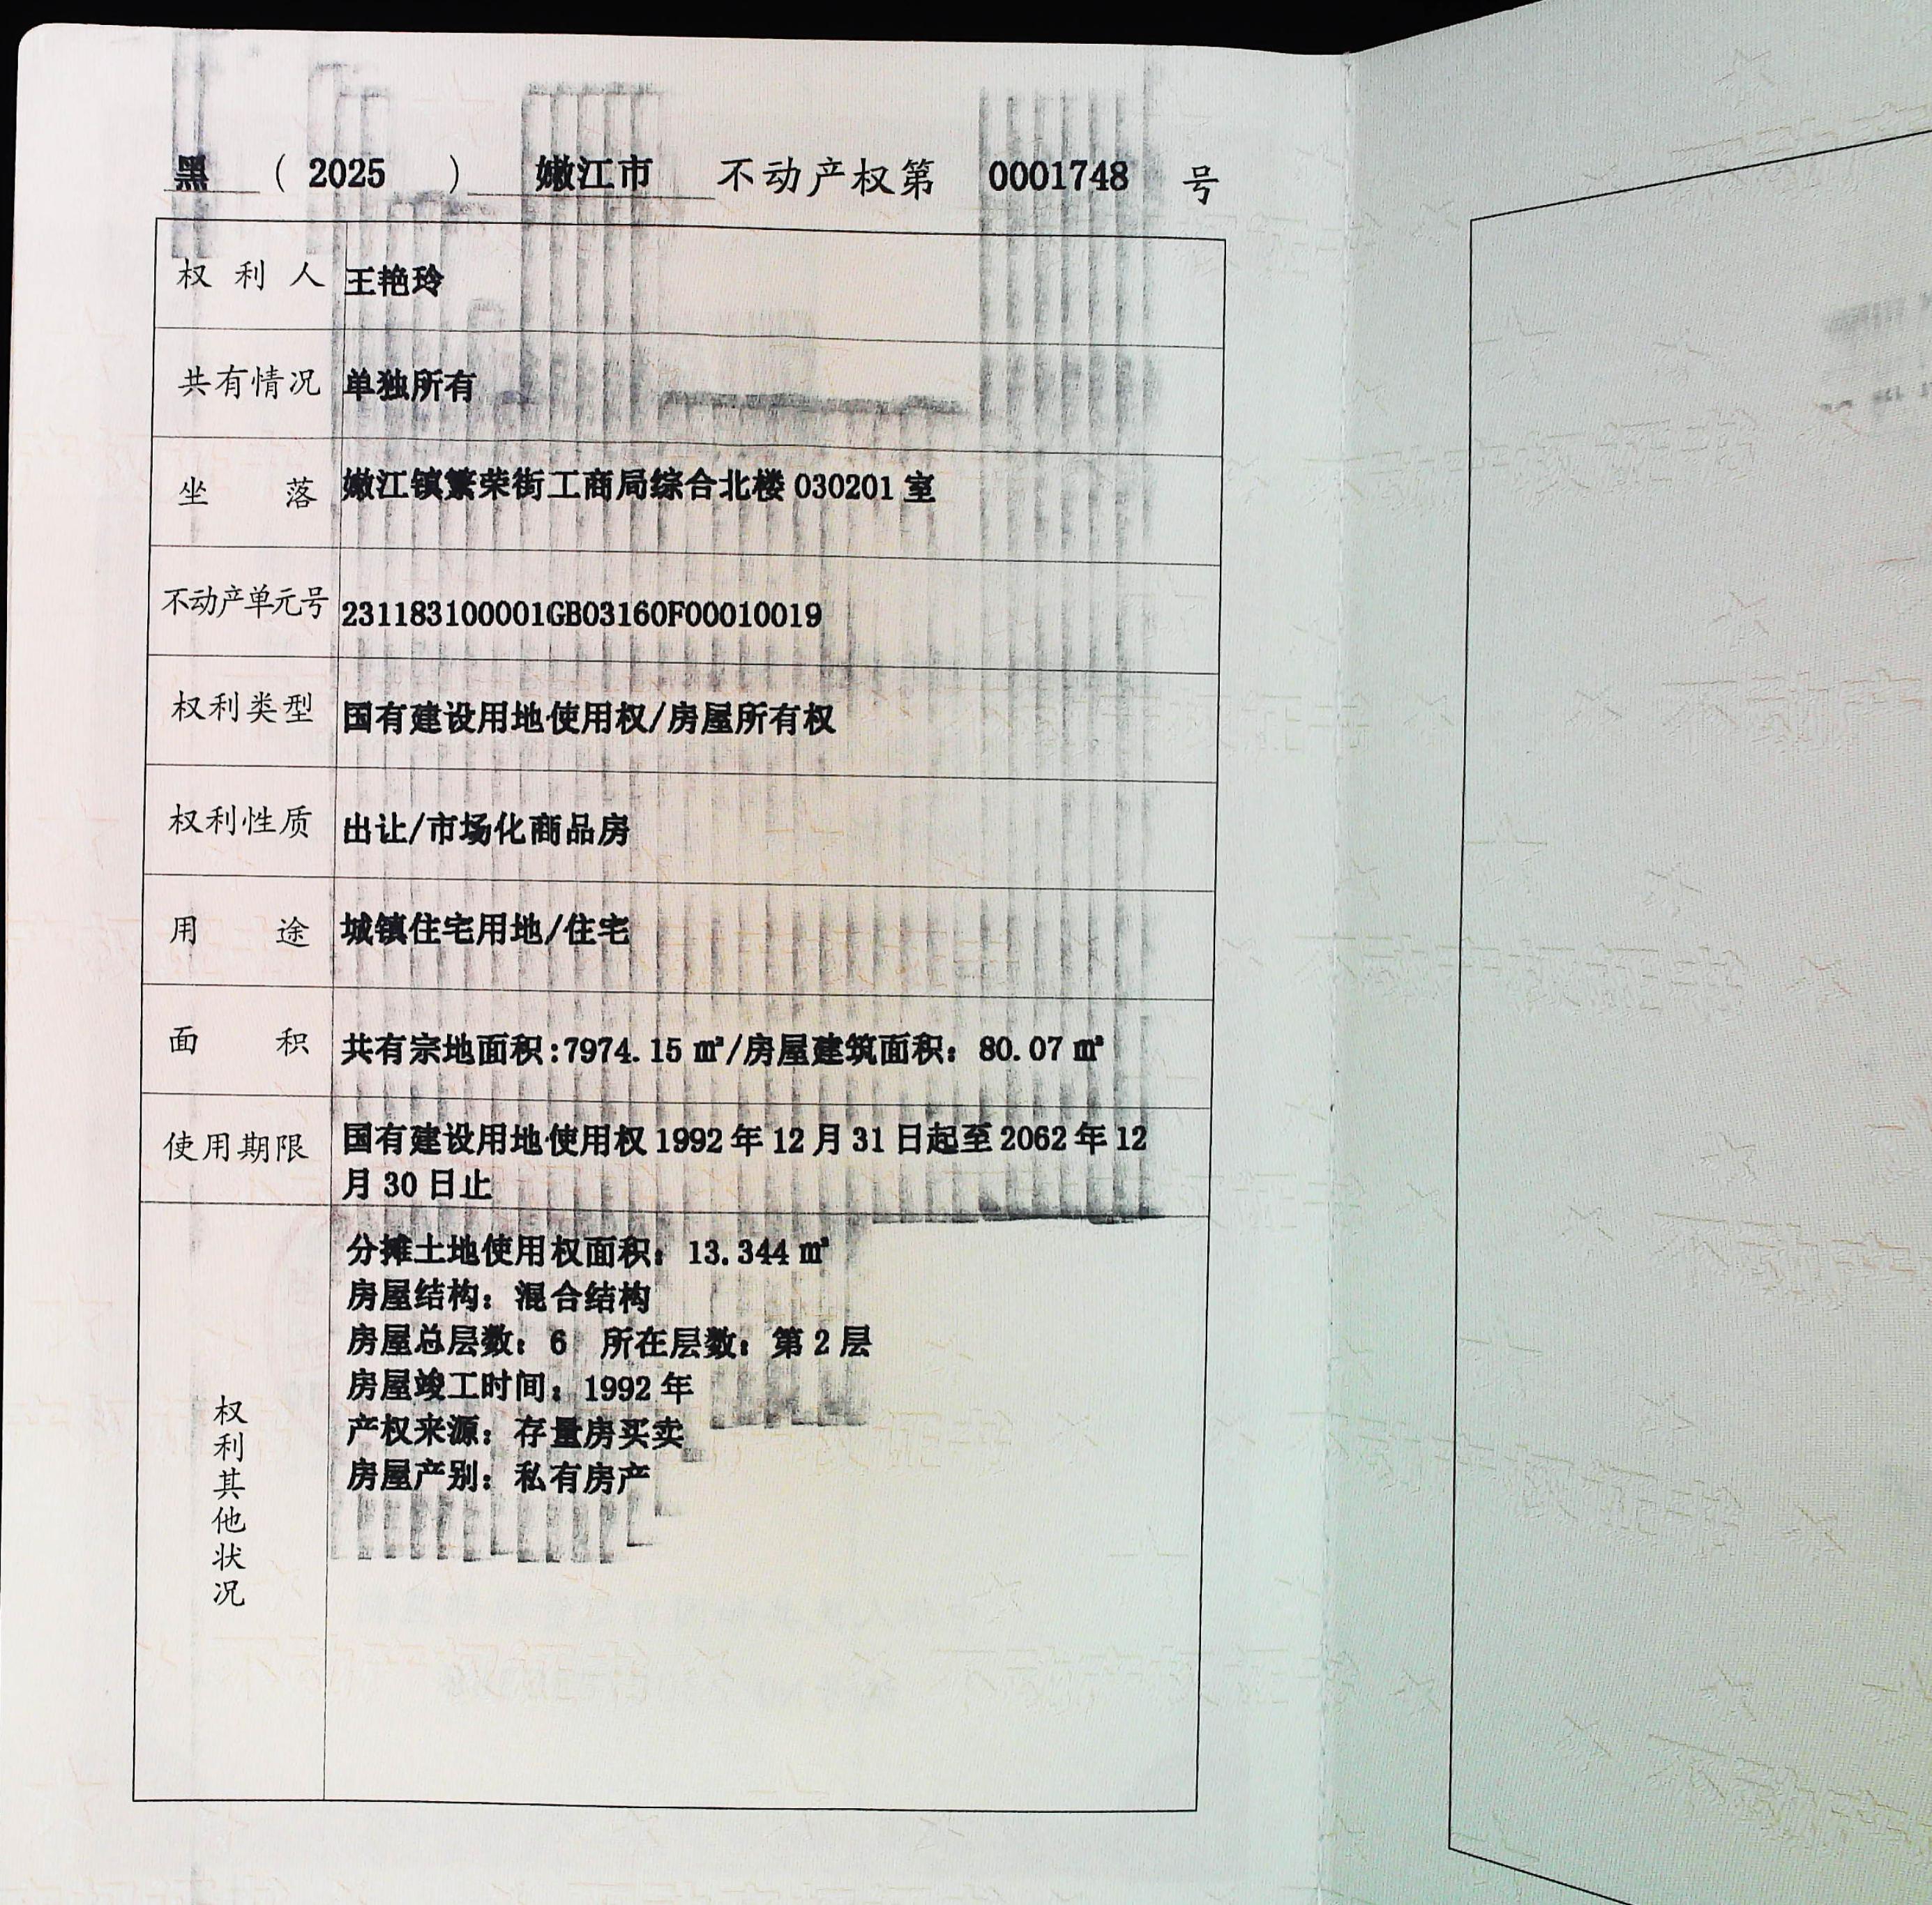 黑 （ 2025 ） 嫩江市 不动产权第 0001748 号
权利人 王艳玲
共有情况 单独所有
坐落 嫩江镇繁荣街工商局综合北楼 030201 室
不动产单元号 231183100001GB03160F00010019
权利类型 国有建设用地使用权/房屋所有权
权利性质 出让/市场化商品房
用途 城镇住宅用地/住宅
面积 共有宗地面积:7974.15 ㎡/房屋建筑面积：80.07 ㎡
使用期限 国有建设用地使用权 1992 年 12 月 31 日起至 2062 年 12
月 30 日止
权利其他状况
分摊土地使用权面积：13.344 ㎡
房屋结构：混合结构
房屋总层数：6 所在层数：第 2 层
房屋竣工时间：1992 年
产权来源：存量房买卖
房屋产别：私有房产